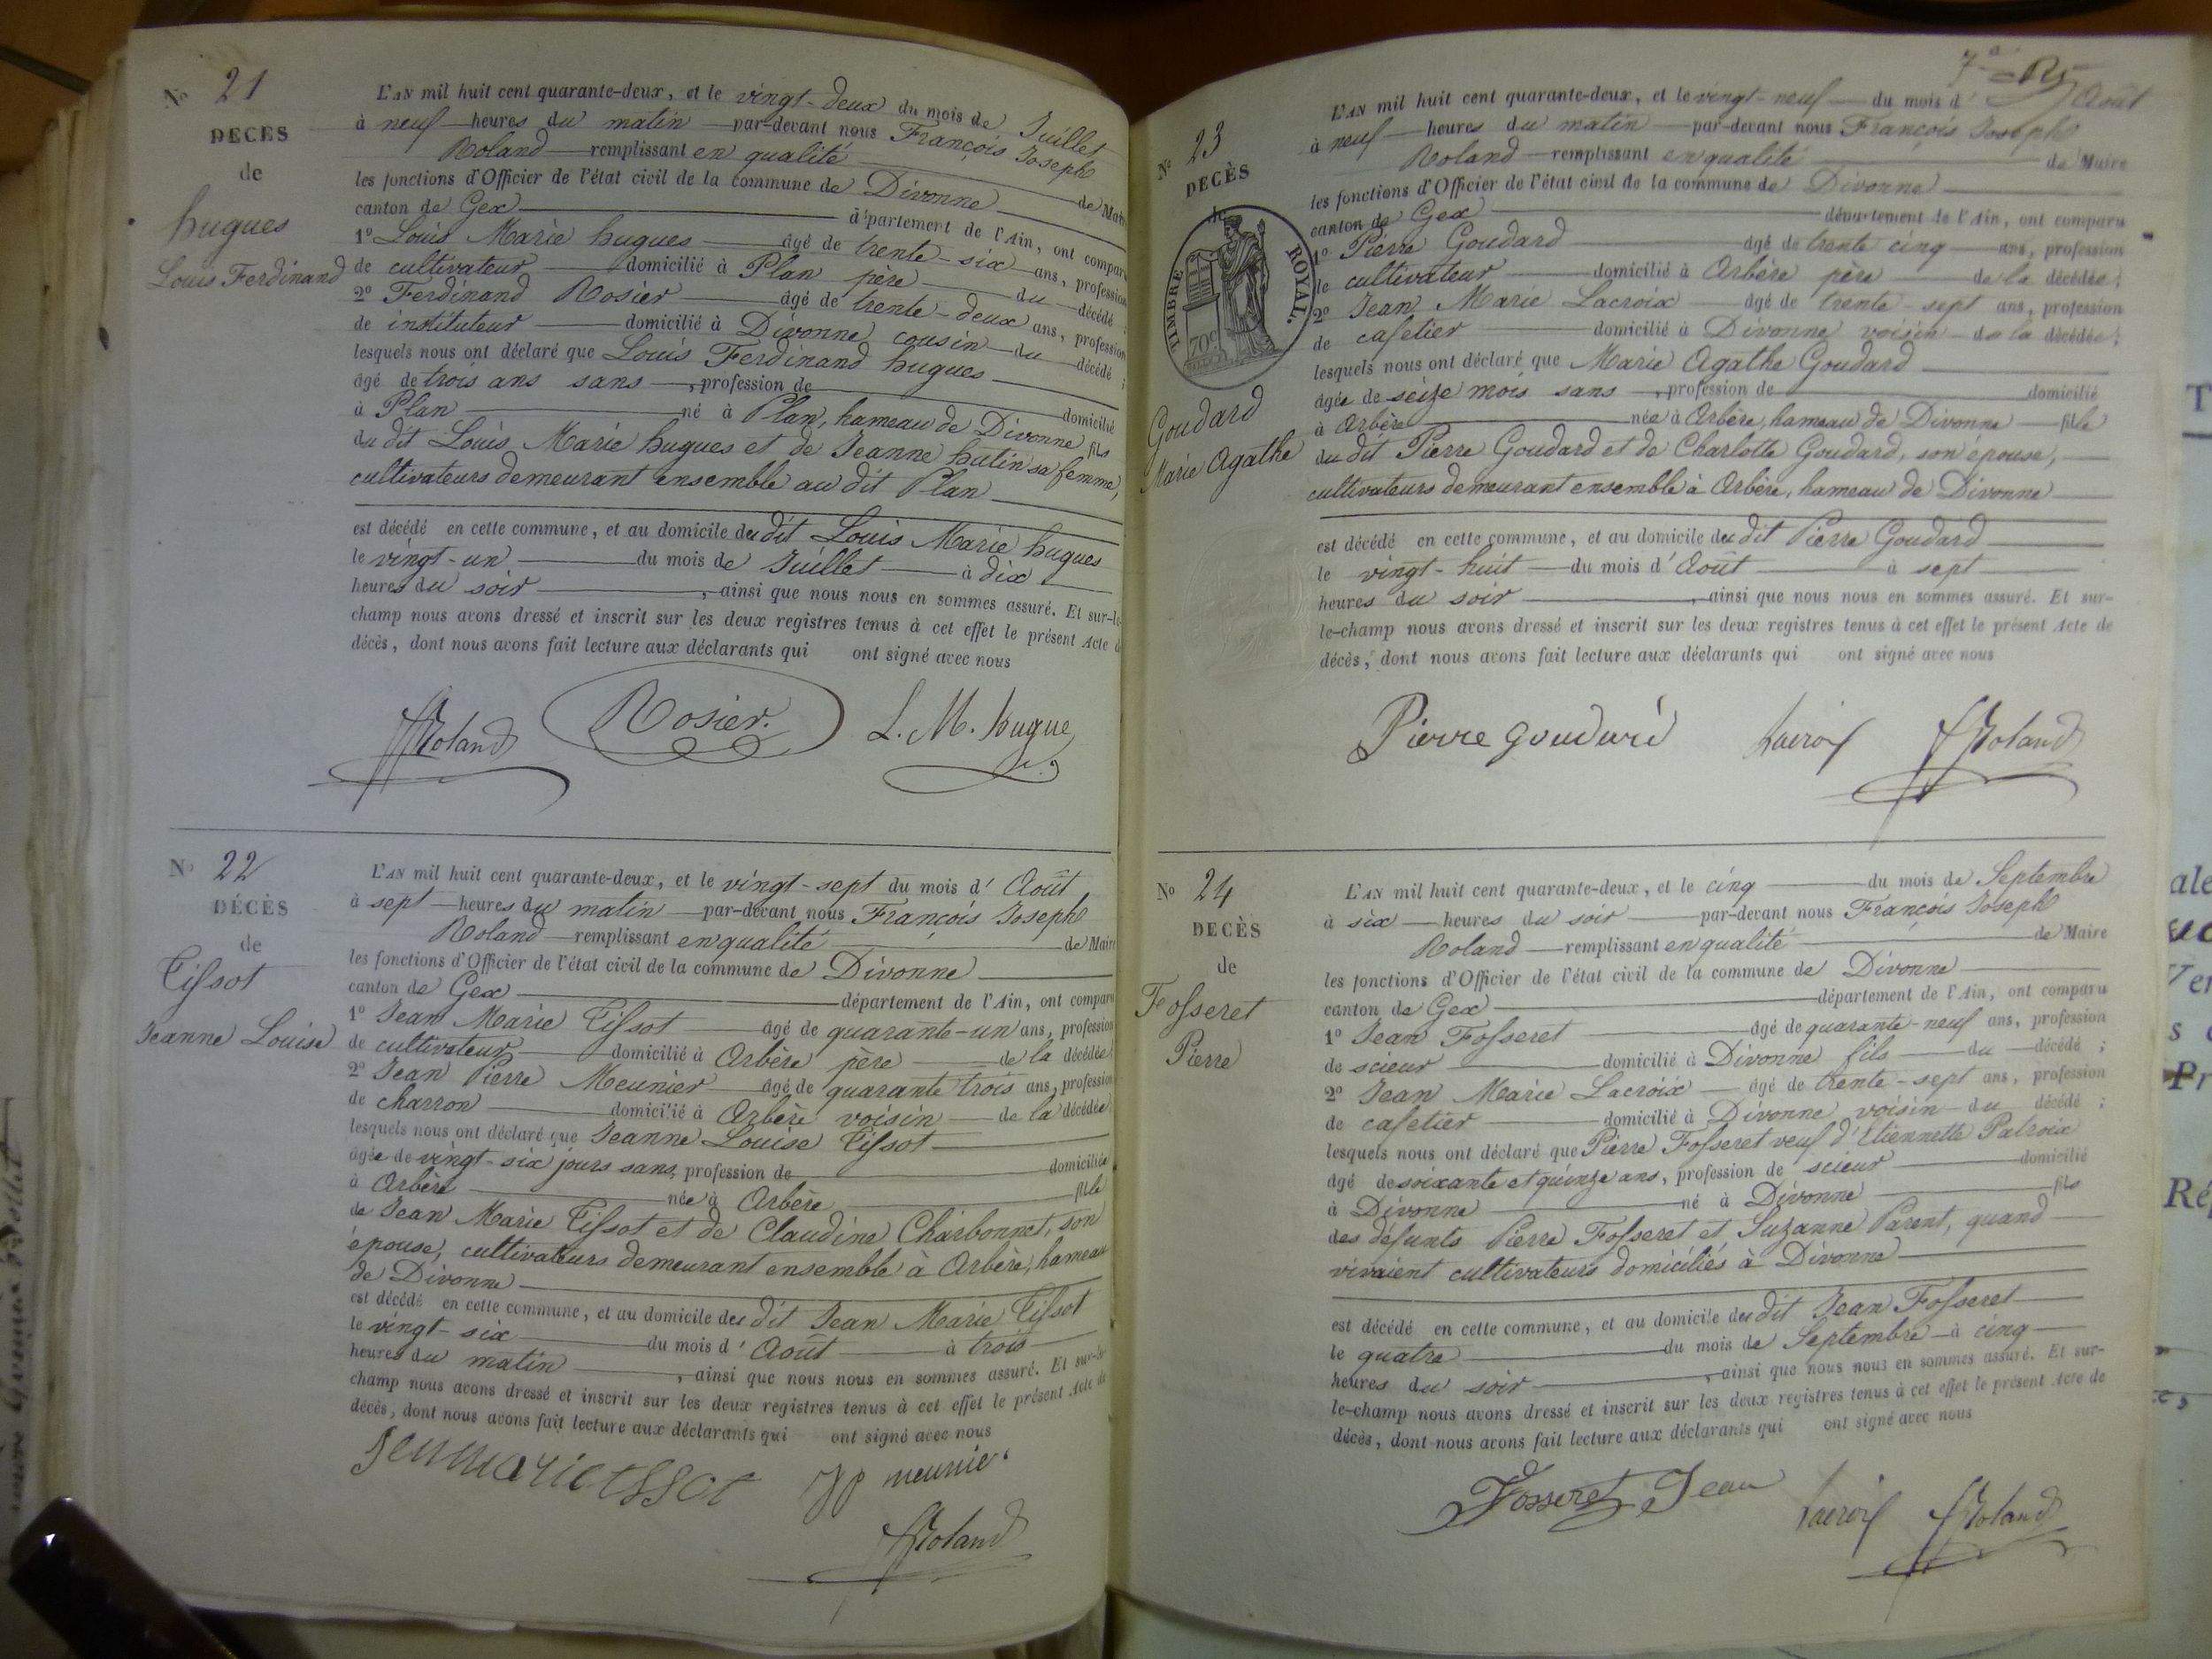 N° 21
DÉCÈS
de
hugues
Louis Ferdinand
L'AN mil huit cent quarante-deux, et le vingt-deux du mois de Juillet
à neuf heures du matin par-devant nous François Joseph
Roland remplissant en qualité de Maire
les fonctions d'Officier de l'état civil de la commune de Divonne
canton de Gex département de l'Ain, ont comparu
1° Louis Marie hugues âgé de trente-six ans, profession
de cultivateur domicilié à Plan père du décédé ;
2° Ferdinand Rosier âgé de trente-deux ans, profession
de instituteur domicilié à Divonne cousin du décédé ;
lesquels nous ont déclaré que Louis Ferdinand hugues
âgé de trois ans sans , profession de domicilié
à Plan né à Plan, hameau de Divonne fils
du dit Louis Marie hugues et de Jeanne hutin sa femme,
cultivateurs demeurant ensemble au dit Plan
est décédé en cette commune, et au domicile du dit Louis Marie hugues
le vingt-un du mois de Juillet à dix
heures du soir , ainsi que nous nous en sommes assuré. Et sur-le-
champ nous avons dressé et inscrit sur les deux registres tenus à cet effet le présent Acte de
décès, dont nous avons fait lecture aux déclarants qui ont signé avec nous
Roland Rosier. L. M. hugue
N° 22
DÉCÈS
de
Tissot
Jeanne Louise
L'AN mil huit cent quarante-deux, et le vingt-sept du mois d' Août
à sept heures du matin par-devant nous François Joseph
Roland remplissant en qualité de Maire
les fonctions d'Officier de l'état civil de la commune de Divonne
canton de Gex département de l'Ain, ont comparu
1° Jean Marie Tissot âgé de quarante-un ans, profession
de cultivateur domicilié à Arbère père de la décédée
2° Jean Pierre Meunier âgé de quarante trois ans, profession
de charron domicilié à Arbère voisin de la décédée
lesquels nous ont déclaré que Jeanne Louise Tissot
âgée de vingt-six jours sans, profession de domiciliée
à Arbère née à Arbère fille
de Jean Marie Tissot et de Claudine Charbonnet, son
épouse, cultivateurs demeurant ensemble à Arbère, hameau
de Divonne
est décédé en cette commune, et au domicile du dit Jean Marie Tissot
le vingt-six du mois d' Août à trois
heures du matin , ainsi que nous nous en sommes assuré. Et sur-le-
champ nous avons dressé et inscrit sur les deux registres tenus à cet effet le présent Acte de
décès, dont nous avons fait lecture aux déclarants qui ont signé avec nous
Jeanmarie tssot JP meunier
Roland
N° 23
DÉCÈS
de
TIMBRE ROYAL.
70c
Goudard
Marie Agathe
L'AN mil huit cent quarante-deux, et le vingt-neuf du mois d' Août
à neuf heures du matin par-devant nous François Joseph
Roland remplissant en qualité de Maire
les fonctions d'Officier de l'état civil de la commune de Divonne
canton de Gex département de l'Ain, ont comparu
1° Pierre Goudard âgé de trente cinq ans, profession
de cultivateur domicilié à Arbère père de la décédée ;
2° Jean Marie Lacroix âgé de trente-sept ans, profession
de cafetier domicilié à Divonne voisin de la décédée ;
lesquels nous ont déclaré que Marie Agathe Goudard
âgée de seize mois sans , profession de domicilié
à Arbère née à Arbère, hameau de Divonne fille
du dit Pierre Goudard et de Charlotte Goudard, son épouse,
cultivateurs demeurant ensemble à Arbère, hameau de Divonne
est décédé en cette commune, et au domicile du dit Pierre Goudard
le vingt-huit du mois d' Août à sept
heures du soir , ainsi que nous nous en sommes assuré. Et sur-
le-champ nous avons dressé et inscrit sur les deux registres tenus à cet effet le présent Acte de
décès, dont nous avons fait lecture aux déclarants qui ont signé avec nous
Pierre Goudard Lacroix Roland
N° 24
DECÈS
de
Fosseret
Pierre
L'AN mil huit cent quarante-deux, et le cinq du mois de Septembre
à six heures du soir par-devant nous François Joseph
Roland remplissant en qualité de Maire
les fonctions d'Officier de l'état civil de la commune de Divonne
canton de Gex département de l'Ain, ont comparu
1° Jean Fosseret âgé de quarante-neuf ans, profession
de scieur domicilié à Divonne fils du décédé ;
2° Jean Marie Lacroix âgé de trente-sept ans, profession
de cafetier domicilié à Divonne voisin du décédé ;
lesquels nous ont déclaré que Pierre Fosseret veuf d'Etiennette Patroix
âgé de soixante et quinze ans, profession de scieur domicilié
à Divonne né à Divonne fils
des défunts Pierre Fosseret et Suzanne Parent, quand
vivaient cultivateurs domiciliés à Divonne
est décédé en cette commune, et au domicile du dit Jean Fosseret
le quatre du mois de Septembre à cinq
heures du soir , ainsi que nous nous en sommes assuré. Et sur-
le-champ nous avons dressé et inscrit sur les deux registres tenus à cet effet le présent Acte de
décès, dont nous avons fait lecture aux déclarants qui ont signé avec nous
Fosseret Jean Lacroix Roland